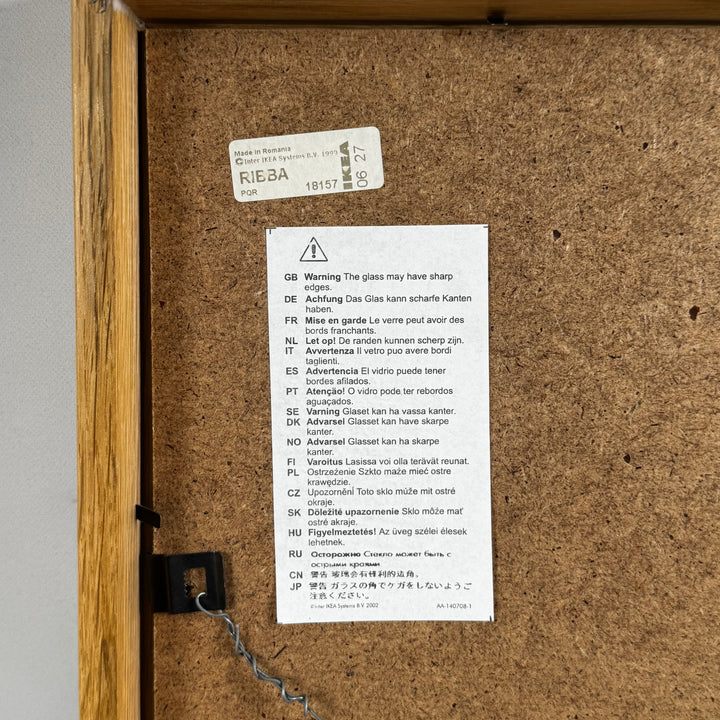 Made in Romania
© Inter IKEA Systems B.V. 1999
RIBBA
PQR
18157
IKEA
06 27
GB Warning The glass may have sharp
edges.
DE Achfung Das Glas kann scharfe Kanten
haben.
FR Mise en garde Le verre peut avoir des
bords franchants.
NL Let op! De randen kunnen scherp zijn.
IT Avvertenza Il vetro puo avere bordi
taglienti.
ES Advertencia El vidrio puede tener
bordes afilados.
PT Atenção! O vidro pode ter rebordos
aguaçados.
SE Varning Glaset kan ha vassa kanter.
DK Advarsel Glasset kan have skarpe
kanter.
NO Advarsel Glasset kan ha skarpe
kanter.
FI Varoitus Lasissa voi olla terävät reunat.
PL Ostrzeżenie Szkto maże mieć ostre
krawędzie.
CZ Upozornění Toto sklo může mit ostré
okraje.
SK Döležité upazornenie Sklo môže mať
ostré akraje.
HU Figyelmeztetés! Az üveg szélei élesek
lehetnek.
RU Осторожно Стекло может быть с
острыми краями
CN 警告 玻璃会有锋利的边角。
JP 警告 ガラスの角でケガをしないようご
注意ください。
© Inter IKEA Systems B.V. 2002
AA-140708-1